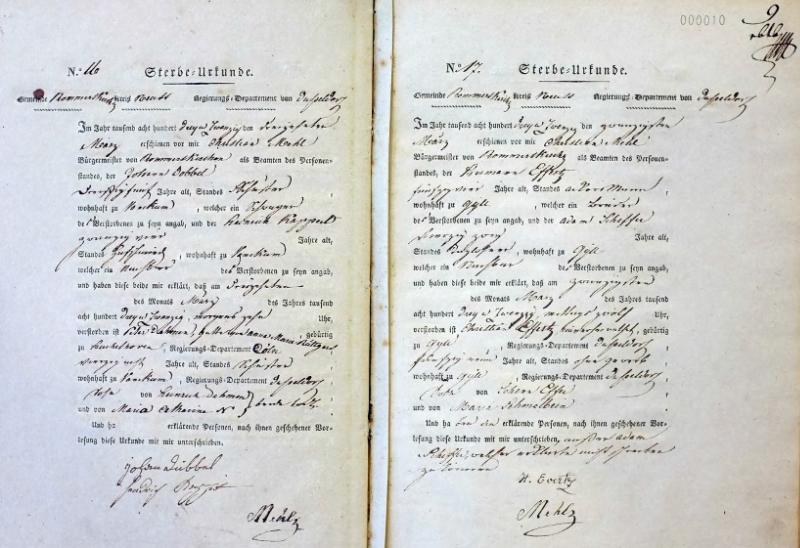 N.º 16 Sterbe-Urkunde.
Gemeinde Rommerskirchen Kreis Neuss Regierungs-Departement von Dusseldorf
Im Jahr tausend acht hundert Drey u Zwanzig den Dreyzehnten
Merz erschienen vor mir Christian Mehl
Bürgermeister von Rommerskirchen als Beamten des Personen-
standes, der Johann Dobbel
Dreissig fünf Jahre alt, Standes
wohnhaft zu , welcher ein Schwager
des Verstorbenen zu seyn angab, und der Heinrich
zwanzig vier Jahre alt,
Standes , wohnhaft zu
welcher ein Nachbar des Verstorbenen zu seyn angab,
und haben diese beide mir erklärt, daß am Dreyzehnten
des Monats Merz des Jahres tausend
acht hundert Drey u Zwanzig, morgens zehn Uhr,
verstorben ist Peter Dahmen, Anna Maria , gebürtig
zu , Regierungs-Departement Cöln,
vierzig acht Jahre alt, Standes
wohnhaft zu , Regierungs-Departement Dusseldorf
Sohn von Henrich Dahmen
und von Maria Catharina N beide
Und ha erklärende Personen, nach ihnen geschehener Vor-
lesung diese Urkunde mit mir unterschrieben.
Johan Dübbel
Hendrich
Mehl
000010
9
N.º 17. Sterbe-Urkunde.
Gemeinde Rommerskirchen Kreis Neuss Regierungs-Departement von Dusseldorf
Im Jahr tausend acht hundert Drey u Zwanzig den zwanzigsten
Merz erschienen vor mir Christian Mehl
Bürgermeister von Rommerskirchen als Beamten des Personen-
standes, der Hermann Effertz
fünfzig vier Jahre alt, Standes Ackersmann
wohnhaft zu Gyll , welcher ein Bruder
des Verstorbenen zu seyn angab, und der Adam Scheffer
vierzig zwey Jahre alt,
Standes , wohnhaft zu Gyll
welcher ein Nachbar des Verstorbenen zu seyn angab,
und haben diese beide mir erklärt, daß am zwanzigsten
des Monats Merz des Jahres tausend
acht hundert Drey u Zwanzig, mittags zwölf Uhr,
verstorben ist Christian Effertz , gebürtig
zu Gyll , Regierungs-Departement Dusseldorf
fünfzig neun Jahre alt, Standes ohne Gewerb
wohnhaft zu Gyll , Regierungs-Departement Dusseldorf
Sohn von
und von Maria
Und ha ben die erklärende Personen, nach ihnen geschehener Vor-
lesung diese Urkunde mit mir unterschrieben, außer Adam
Scheffer, welcher erklärte nicht schreiben
zu können
H. Evertz
Mehl